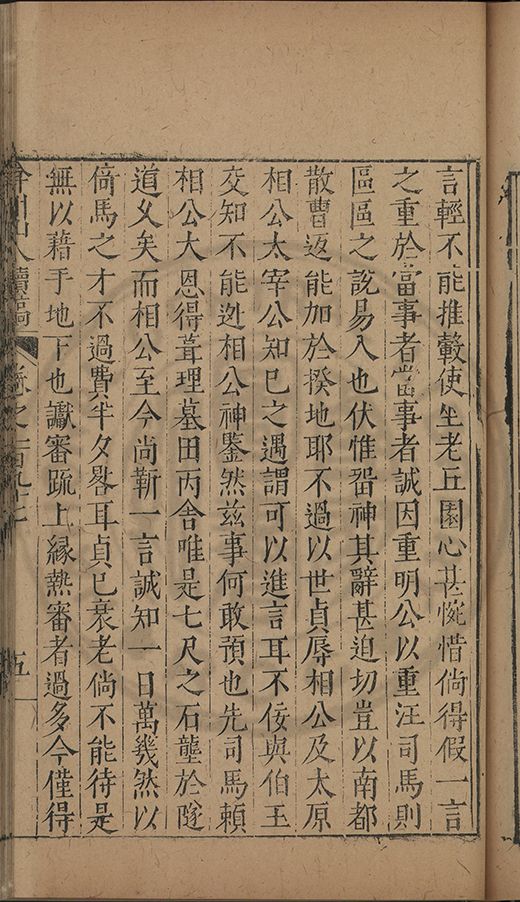 言輕不能推轂使坐老丘園心甚惋惜倘得假一言
之重於當事者當事者誠因重明公以重汪司馬則
區區之說易入也伏惟畱神其辭甚迫切豈以南都
散曹返能加於揆地耶不過以世貞辱相公及太原
相公太宰公知巳之遇謂可以進言耳不佞與伯玉
交知不能迯相公神鑒然兹事何敢預也先司馬賴
相公大恩得葺理墓田丙舍唯是七尺之石壟於隧
道乆矣而相公至今尚靳一言誠知一日萬幾然以
倚馬之才不過費半夕晷耳貞巳衰老倘不能待是
無以藉手地下也讞審䟽上緣熱審者過多今僅得
弇州山人續稿 卷之一百九十 五